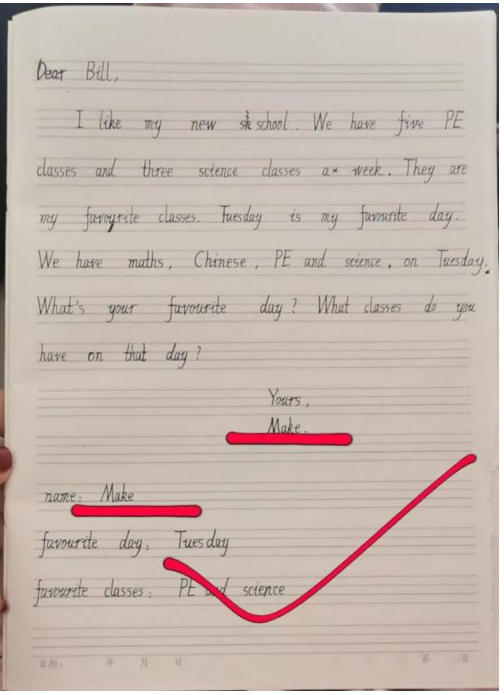 Dear Bill,
I like my new school. We have five PE
classes and three science classes a week. They are
my favourite classes. Tuesday is my favourite day.
We have maths, Chinese, PE and science, on Tuesday.
What's your favourite day? What classes do you
have on that day?
Yours,
Make.
name: Make
favourite day: Tuesday
favourite classes: PE and science
日期: 年 月 日 第 页